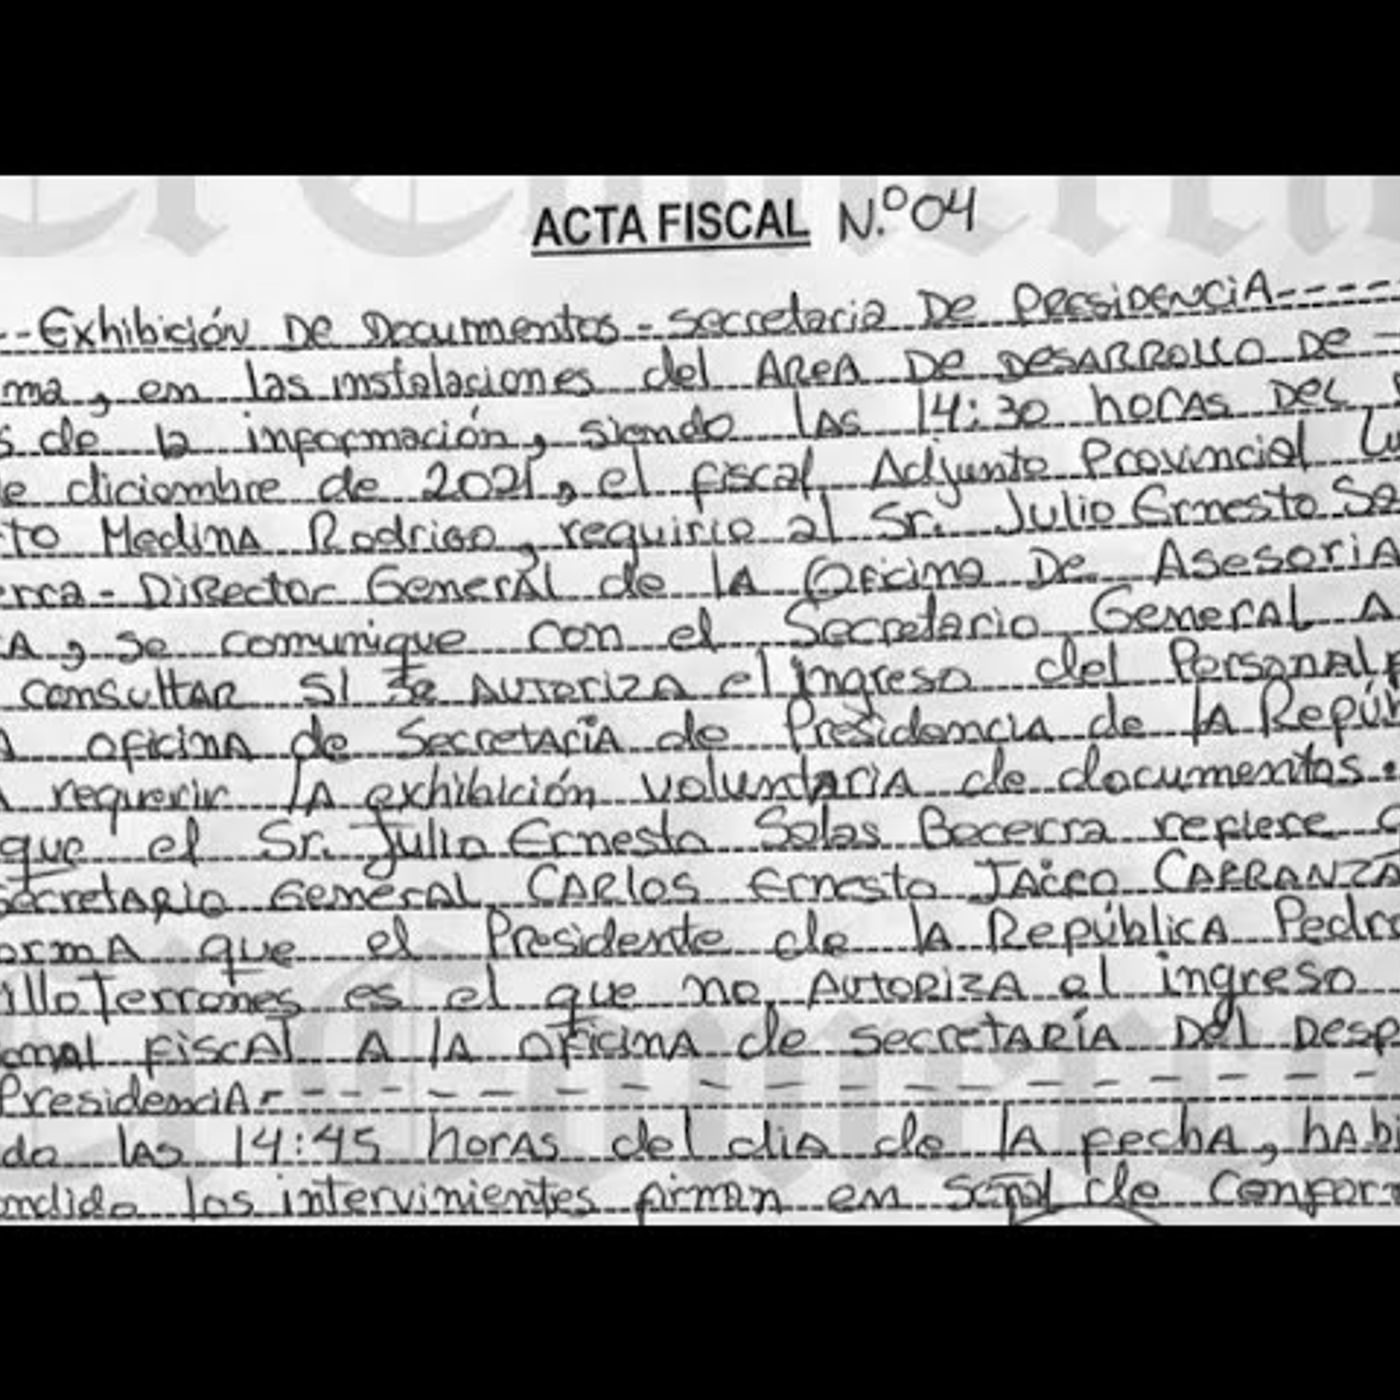 ACTA FISCAL N.º 04
--Exhibición De Documentos - Secretaria De PresiDENCiA-----
ma, en las instalaciones del AREA De DESARROLLO De -
s de la información, siendo LAS 14:30 horAS DEL
e diciembre de 2021, el fiscal Adjunto Provincial Lu
to MedinA Rodrigo, requirio al Sr. Julio Ernesto Sa
erra - Director GenerAl de lA Oficina De AsesoriA
A, se comunique con el Secretario GenerAL A
consultAR SI se AUToriZA el ingreso del PersonAl f
A oficinA de SecretAríA de PresidenciA de lA Repúb
A requerir lA exhibición voluntAriA de documentos.
que el Sr. Julio Ernesto Salas Becerra refiere q
SecretARio General CARlos Ernesto JAicco CARRANZA
ormA que el Presidente de lA RepúblicA Pedro
illo Terrones es el que no AUToRiZA el ingreso
onAl FiscAl A lA oficinA de SecretARíA Del Desp
PresidenciA.- - - - - - - - - - - - - - - - - -
do lAs 14:45 horAS del diA de lA fechA, hAbi
ndido los intervinientes firmAn en señal de Conform